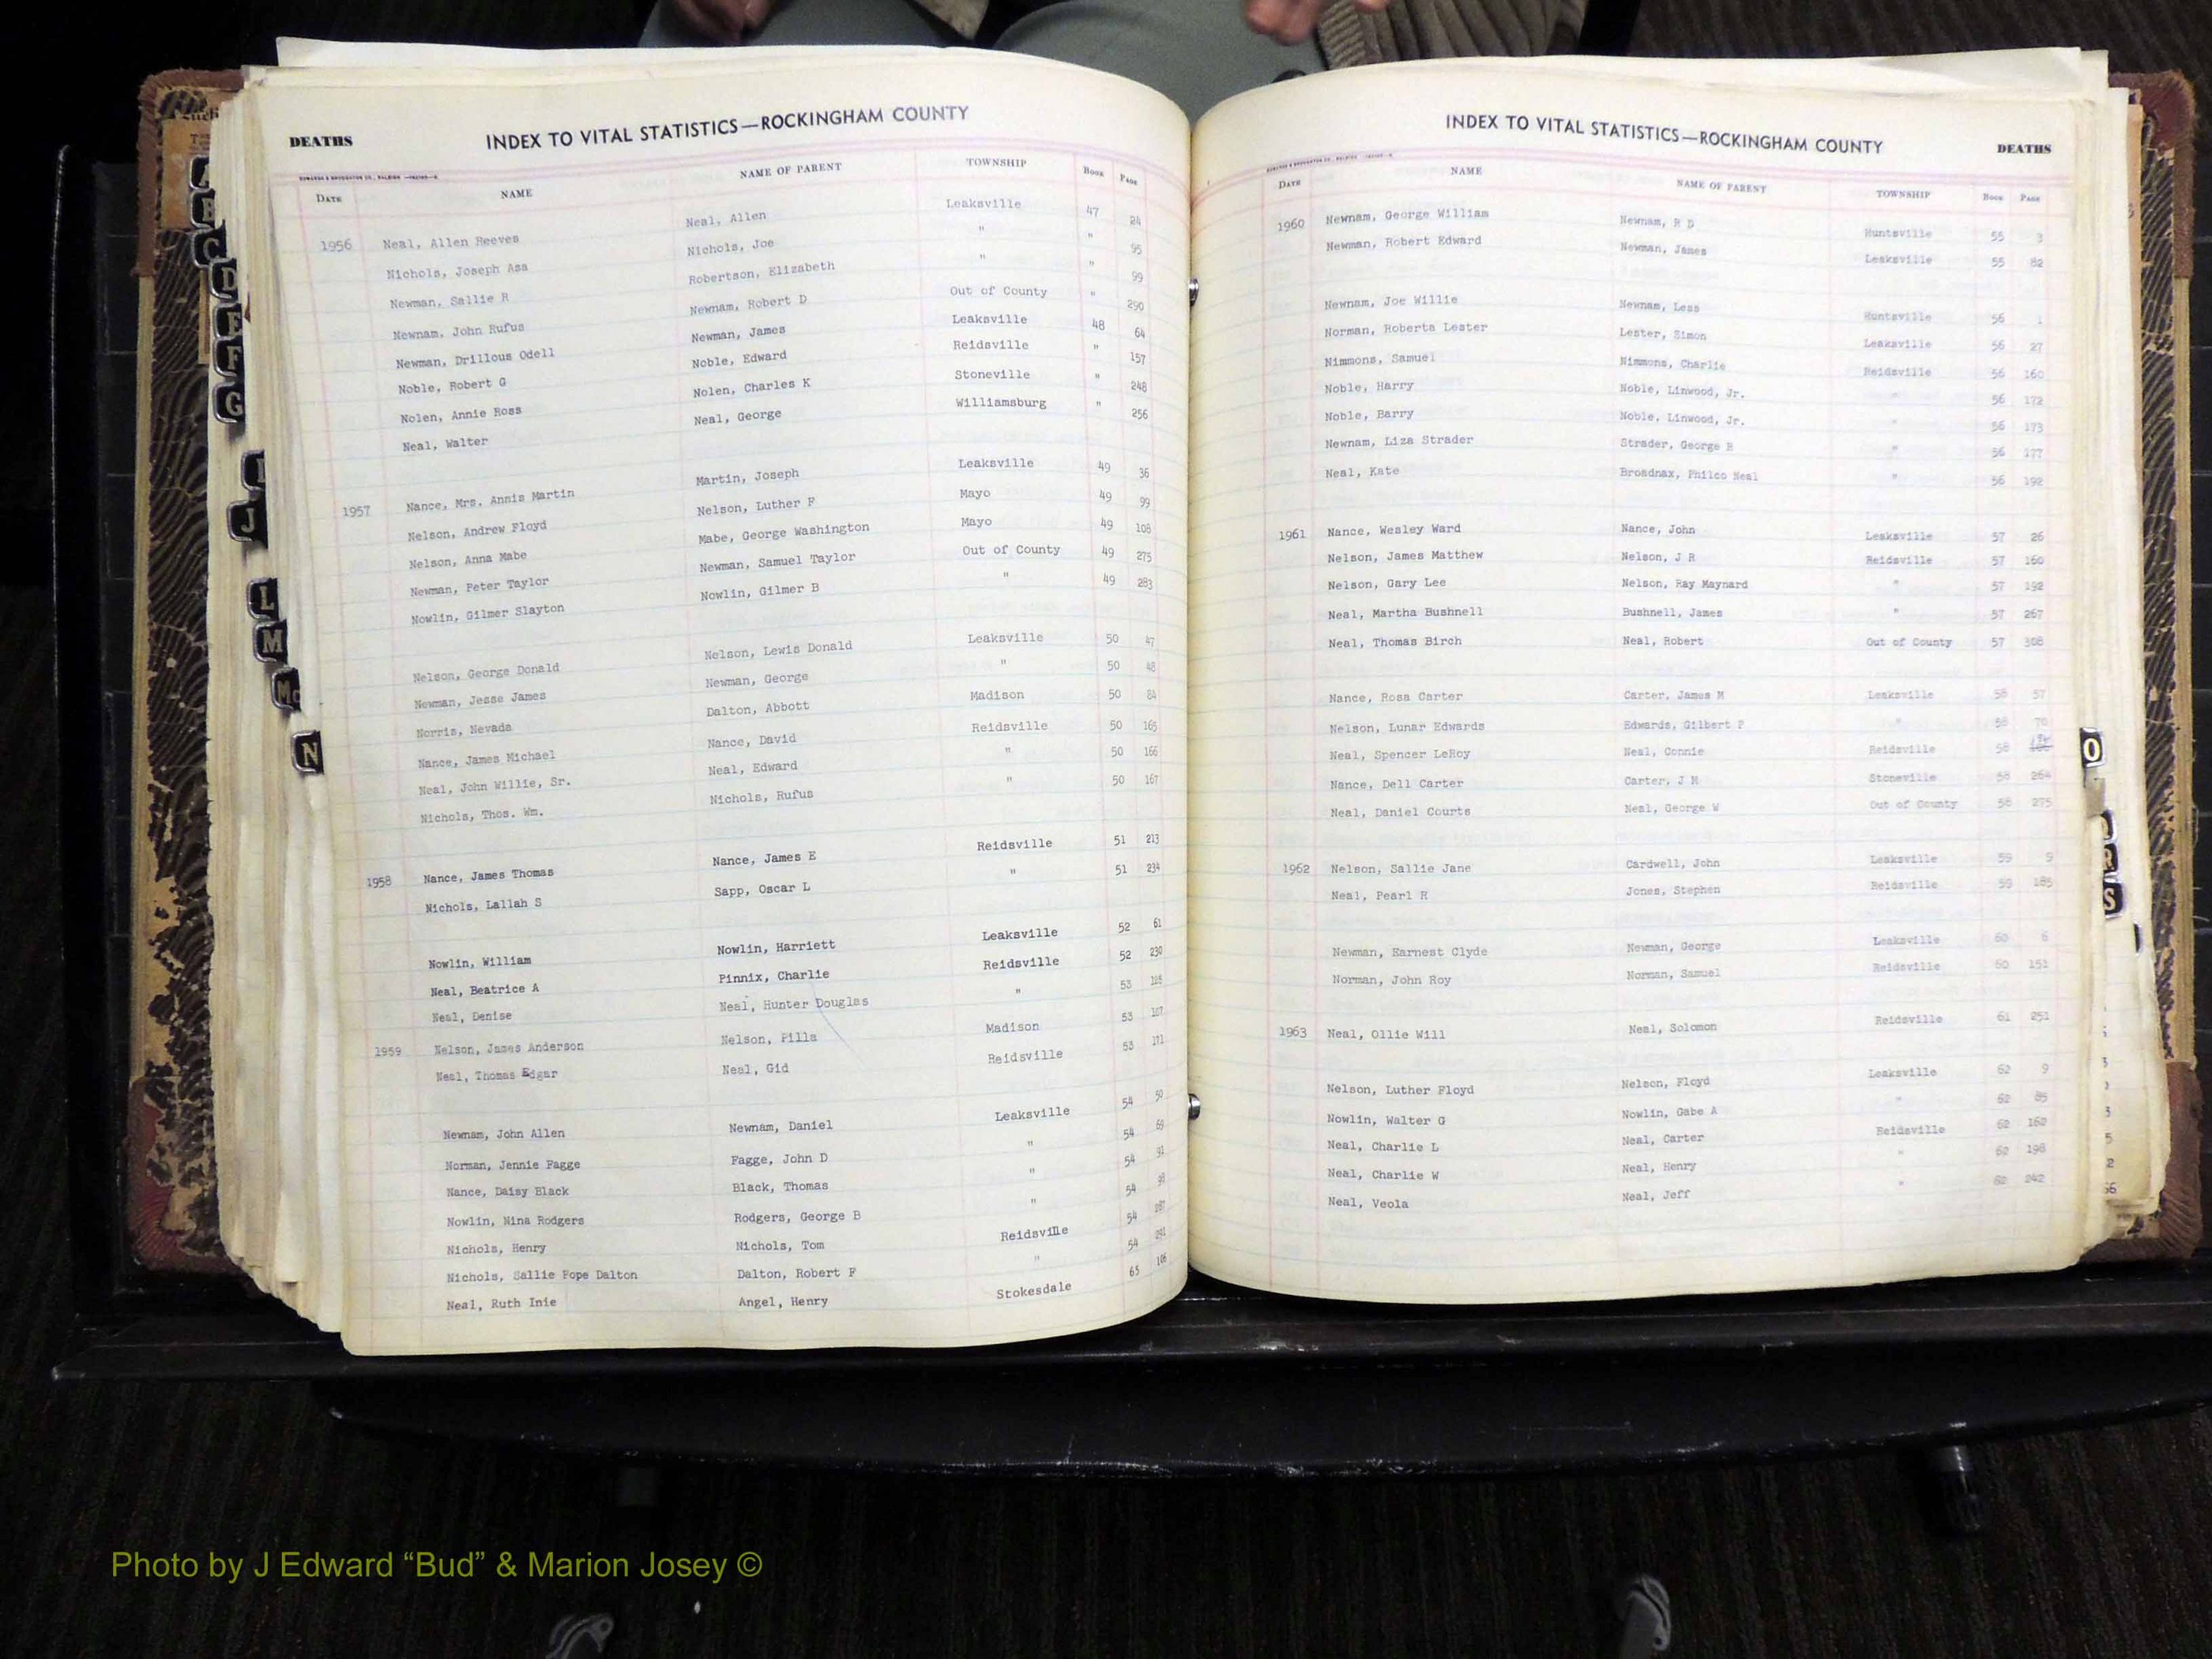 DEATHS INDEX TO VITAL STATISTICS—ROCKINGHAM COUNTY
DATE NAME NAME OF PARENT TOWNSHIP BOOK PAGE
1956 Neal, Allen Reeves Neal, Allen Leaksville 47 24
Nichols, Joseph Asa Nichols, Joe " " 95
Newman, Sallie R Robertson, Elizabeth " " 99
Newnam, John Rufus Newnam, Robert D Out of County " 290
Newman, Drillous Odell Newman, James Leaksville 48 64
Noble, Robert G Noble, Edward Reidsville " 157
Nolen, Annie Ross Nolen, Charles K Stoneville " 248
Neal, Walter Neal, George Williamsburg " 256
1957 Nance, Mrs. Annis Martin Martin, Joseph Leaksville 49 36
Nelson, Andrew Floyd Nelson, Luther F Mayo 49 99
Nelson, Anna Mabe Mabe, George Washington Mayo 49 108
Newman, Peter Taylor Newman, Samuel Taylor Out of County 49 275
Nowlin, Gilmer Slayton Nowlin, Gilmer B " 49 283
Nelson, George Donald Nelson, Lewis Donald Leaksville 50 47
Newman, Jesse James Newman, George " 50 48
Norris, Nevada Dalton, Abbott Madison 50 84
Nance, James Michael Nance, David Reidsville 50 165
Neal, John Willie, Sr. Neal, Edward " 50 166
Nichols, Thos. Wm. Nichols, Rufus " 50 167
1958 Nance, James Thomas Nance, James E Reidsville 51 213
Nichols, Lallah S Sapp, Oscar L " 51 234
Nowlin, William Nowlin, Harriett Leaksville 52 61
Neal, Beatrice A Pinnix, Charlie Reidsville 52 230
Neal, Denise Neal, Hunter Douglas " 53
1959 Nelson, James Anderson Nelson, Pilla Madison 53
Neal, Thomas Edgar Neal, Gid Reidsville 53 171
Newnam, John Allen Newnam, Daniel Leaksville 54 50
Norman, Jennie Fagge Fagge, John D " 54 69
Nance, Daisy Black Black, Thomas " 54 91
Nowlin, Nina Rodgers Rodgers, George B " 54 98
Nichols, Henry Nichols, Tom Reidsville 54
Nichols, Sallie Pope Dalton Dalton, Robert F " 54
Neal, Ruth Inie Angel, Henry Stokesdale 65
INDEX TO VITAL STATISTICS—ROCKINGHAM COUNTY DEATHS
DATE NAME NAME OF PARENT TOWNSHIP BOOK PAGE
1960 Newnam, George William Newnam, R D Huntsville 55 3
Newman, Robert Edward Newman, James Leaksville 55 82
Newnam, Joe Willie Newnam, Less Huntsville 56 1
Norman, Roberta Lester Lester, Simon Leaksville 56 27
Nimmons, Samuel Nimmons, Charlie Reidsville 56 160
Noble, Harry Noble, Linwood, Jr. " 56 172
Noble, Barry Noble, Linwood, Jr. " 56 173
Newnam, Liza Strader Strader, George R " 56 177
Neal, Kate Broadnax, Philco Neal " 56 192
1961 Nance, Wesley Ward Nance, John Leaksville 57 26
Nelson, James Matthew Nelson, J R Reidsville 57 160
Nelson, Gary Lee Nelson, Ray Maynard " 57 192
Neal, Martha Bushnell Bushnell, James " 57 267
Neal, Thomas Birch Neal, Robert Out of County 57 308
Nance, Rosa Carter Carter, James M Leaksville 58 57
Nelson, Lunar Edwards Edwards, Gilbert P " 58 70
Neal, Spencer LeRoy Neal, Connie Reidsville 58
Nance, Dell Carter Carter, J M Stoneville 58 264
Neal, Daniel Courts Neal, George W Out of County 58 275
1962 Nelson, Sallie Jane Cardwell, John Leaksville 59 9
Neal, Pearl R Jones, Stephen Reidsville 59 185
Newman, Earnest Clyde Newman, George Leaksville 60 6
Norman, John Roy Norman, Samuel Reidsville 60 151
1963 Neal, Ollie Will Neal, Solomon Reidsville 61 251
Nelson, Luther Floyd Nelson, Floyd Leaksville 62 9
Nowlin, Walter G Nowlin, Gabe A " 62 85
Neal, Charlie L Neal, Carter Reidsville 62 160
Neal, Charlie W Neal, Henry " 62 198
Neal, Veola Neal, Jeff " 62 242
D
E
F
G
I
J
L
M
Mc
N
O
R
S
Photo by J Edward “Bud” & Marion Josey ©